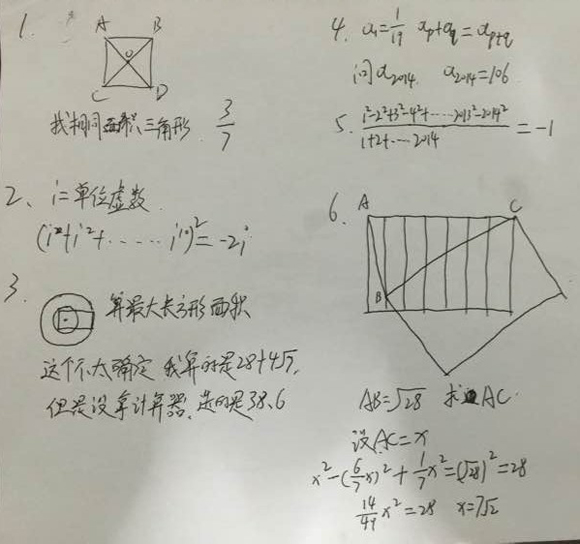 1.
A B
O
C D
找相同面积三角形 3/7
2、i=单位虚数
(i²+i²+······i¹⁰)²=-2i
3.
算最大长方形面积
这个不太确定 我算的是28+4√7,
但是没拿计算器,选的是38.6
4. a₁=1/19 aₚ+a_q=aₚ₊q
问a₂₀₁₄. a₂₀₁₄=106
5. (1²-2²+3²-4²+······2013²-2014²)/(1+2+····2014) =-1
6.
A C
B
AB=√28 求AC.
设AC=x
x²-(6/7x)²+1/7x²=(√28)²=28
14/49x²=28 x=7√2